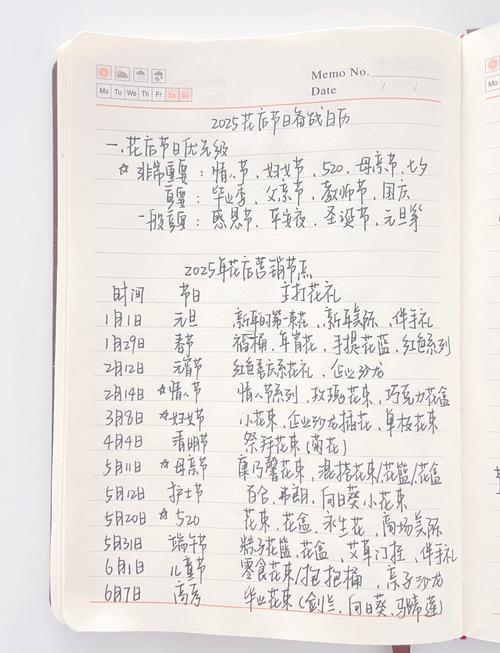 Memo No.
Mo Tu We Th Fr Sa Su
Date / /
2025花店节日备战日历
一.花店节日优先级
☆非常重要：情人节、妇女节、520、母亲节、七夕
重要：毕业季、父亲节、教师节、国庆
一般重要：感恩节、平安夜、圣诞节、元旦等
2025年花店营销节点
时间 节日 主打花礼
1月1日 元旦 新年的第一束花、新年美陈、伴手礼
1月29日 春节 福桶、年宵花、手提花篮、红色系列
2月12日 元宵节 红色喜庆系花礼、企业沙龙
2月14日 ☆情人节 情人节系列、玫瑰花束、巧克力花盒
3月8日 ☆妇女节 小花束、企业沙龙插花、单枝花束
4月4日 清明节 祭拜花束(菊花)
5月11日 ☆母亲节 康乃馨花束、混搭花束/花篮/花盒
5月12日 护士节 百合、弗朗、向日葵小花束
5月20日 ☆520 花束、花盒、永生花、商场美陈
5月31日 端午节 粽子花篮、花盒、艾草门挂、伴手礼
6月1日 儿童节 零食花束/抱抱桶、亲子沙龙
6月7日 高考 毕业花束(剑兰、向日葵、马蹄莲)